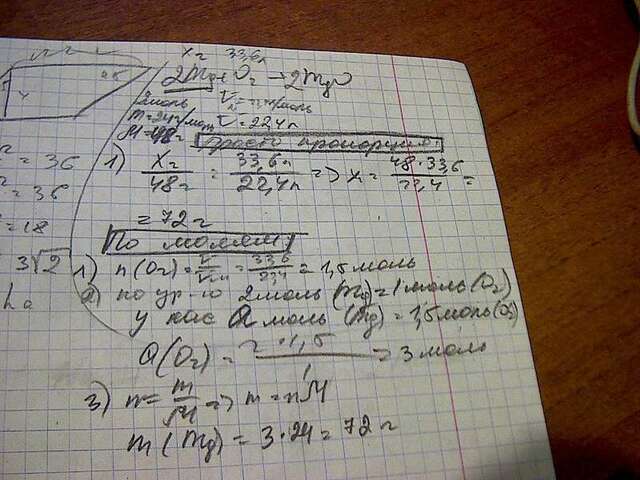 x г 33,6 л
2Mg + O₂ → 2MgO
2моль Vₘ = 22,4 л/моль
m = 24 г/моль V = 22,4 л
M = 48 г
Просто пропорция.
1) x г / 48 г = 33,6 л / 22,4 л => x = 48 · 33,6 / 22,4 =
= 72 г
По молям
1) n(O₂) = V / Vₘ = 33,6 / 22,4 = 1,5 моль
2) по ур-ю 2 моль (Mg) = 1 моль (O₂)
у нас Q моль (Mg) = 1,5 моль (O₂)
Q(O₂) = 2 · 1,5 / 1 = 3 моль
3) n = m / M => m = nM
m(Mg) = 3 · 24 = 72 г
= 36
= 36
= 18
3√2